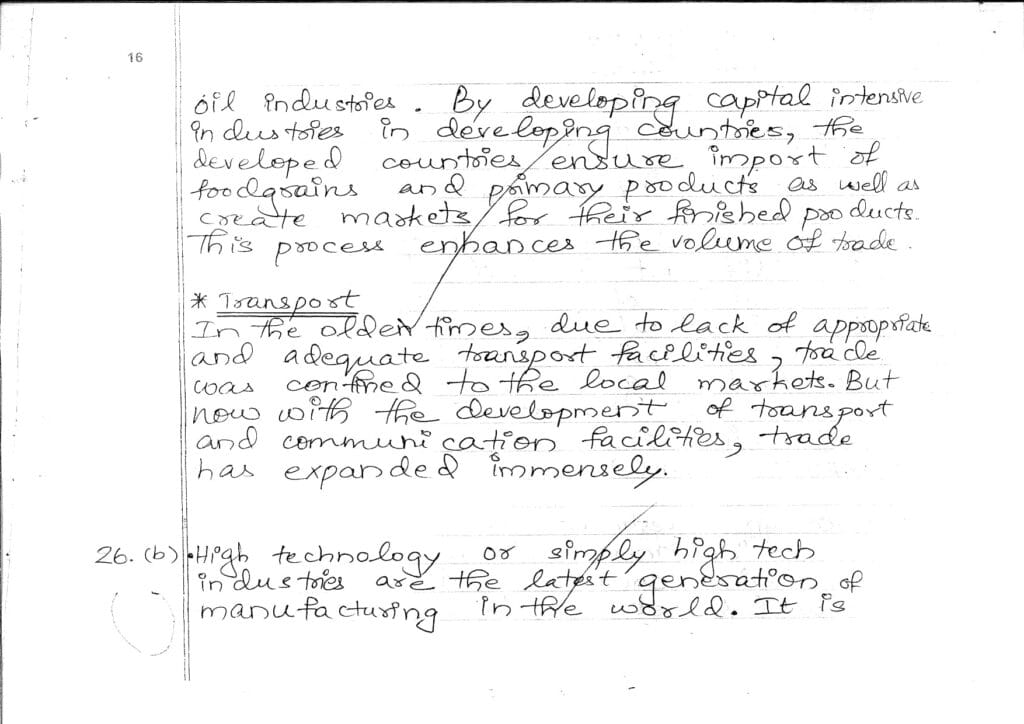 16
oil industries. By developing capital intensive
industries in developing countries, the
developed countries ensure import of
foodgrains and primary products as well as
create markets for their finished products.
This process enhances the volume of trade.
* Transport
In the olden times, due to lack of appropriate
and adequate transport facilities, trade
was confined to the local markets. But
now with the development of transport
and communication facilities, trade
has expanded immensely.
26. (b) • High technology or simply high tech
industries are the latest generation of
manufacturing in the world. It is